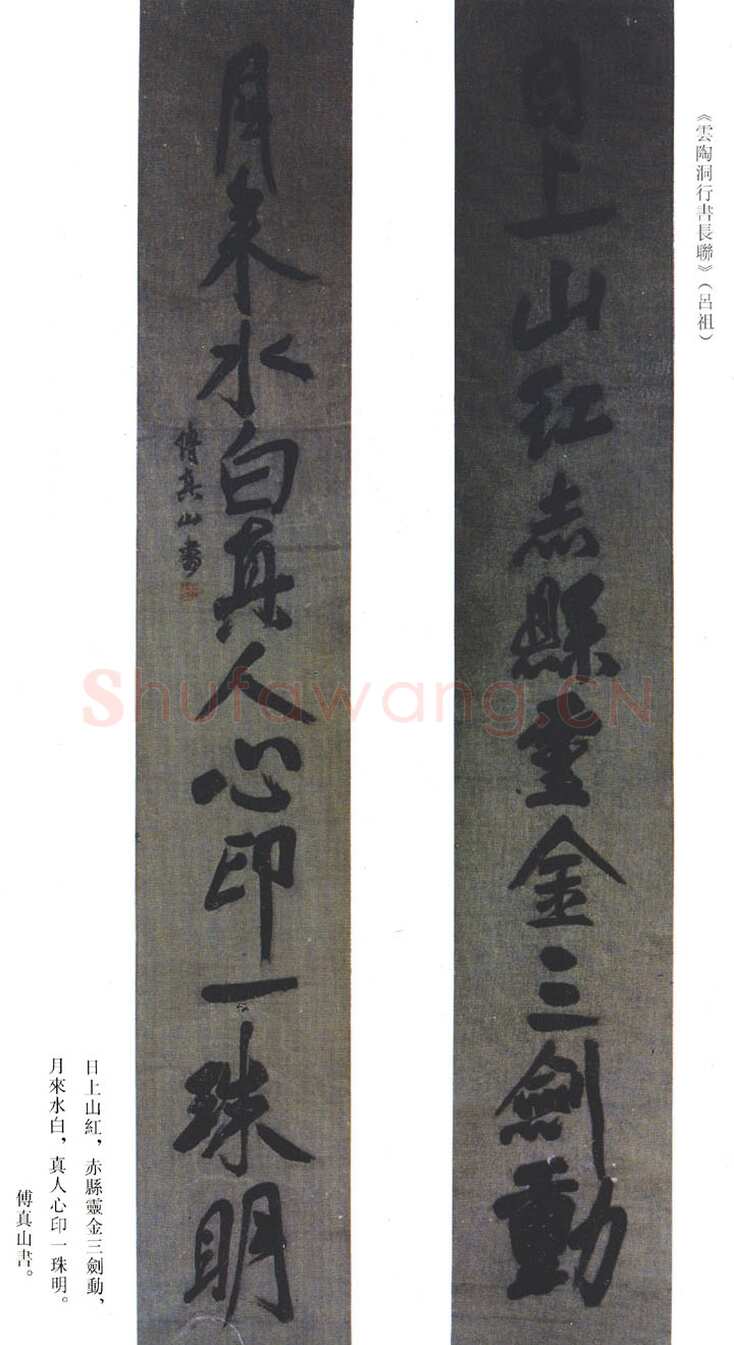 《雲陶洞行書長聯》（呂祖）
日上山紅赤縣靈金三劍動
月來水白真人心印一珠明
傅真山書
日上山紅，赤縣靈金三劍動，
月來水白，真人心印一珠明。
傅真山書。
Shufawang.CN